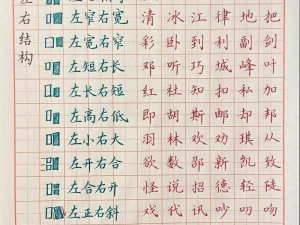 左右结构
左窄右宽 清冰江律地把
左宽右窄 彩卧到利副剑
左短右长 邓听巧城峰叶
左长右短 红杜知扣私加
左高右低 即胡斯邮却邦
左小右大 羽林欢劝琪从
左开右合 欲数邵新凯致
左合右开 怪说招德轻陡
左正右斜 戏代讯吵叨吻